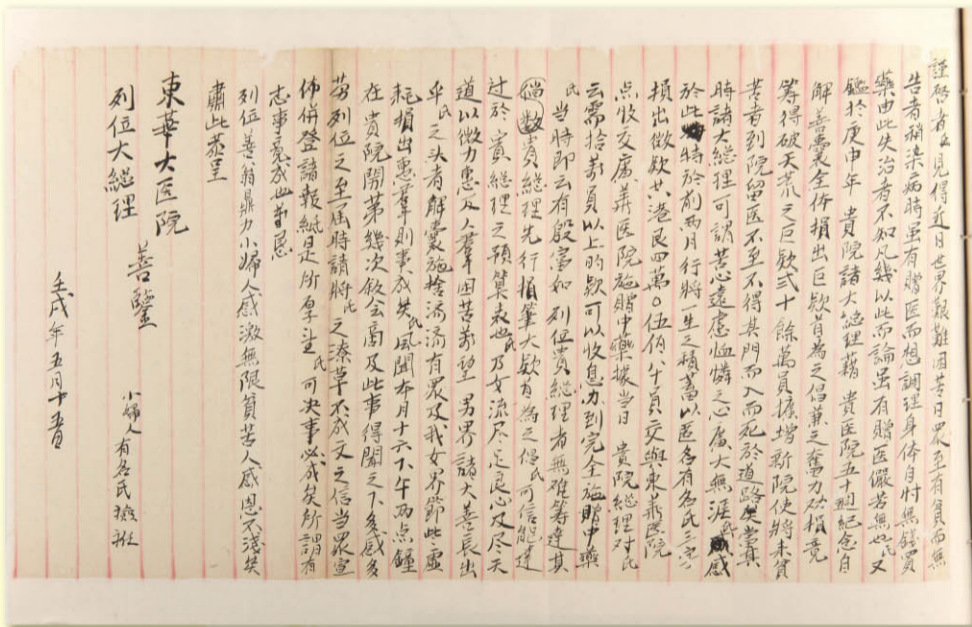 謹啓者氏見得近日世界艱難困苦日眾至有貧而無
告者稍染病時虽有贈医而想調理身体自忖無錢買
藥由此失治者不知凡幾以此而論虽有贈医儼若無也氏又
鑑於庚申年 貴院諸大縂理藉 貴医院五十週紀念自
解善囊全体捐出巨欵首為之倡兼之奮力劝捐竟
籌得破天荒之巨欵弍十餘萬員擴增新院使將来貧
苦者到院留医不至不得其門而入而死於道路矣當其
時諸大縂理可謂苦心遠慮恤憐之心廣大無涯氏感
於此特於前兩月行將一生之積蓄以匿名有名氏三字
損出微欵廿八港艮四萬〇伍佰八十員交與東華医院
点收交廣華医院施贈中藥據当日 貴院縂理对氏
云需拾萬員以上的欵可以收息办到完全施贈中藥
氏当時即云有殷富如 列位貴縂理者無难筹達其
倘数貴縂理先行損筆大欵首為之倡氏可信能達
过於 貴縂理之預筭表也氏乃女流尽是良心及尽天
道以微力惠及人羣困苦萬望 男界諸大善長出
乎氏之头者解囊施捨濟濟有眾及我女界節此虛
耗損出惠羣則事成矣氏風聞本月十六下午两点鐘
在 貴院開第幾次敘会高及此事得聞之下多感多
劳列位之至届時請將此之潦草不成文之信当眾宣
佈併登諸報紙是所厚望氏可决事必成矣所謂有
志事竟成也並恳
列位善翁鼎力小婦人感激無限貧苦人感恩不淺矣
肅此恭呈
東華大医院
列位大縂理 善鑒
小婦人有名氏襝袵
壬戌年五月十五日